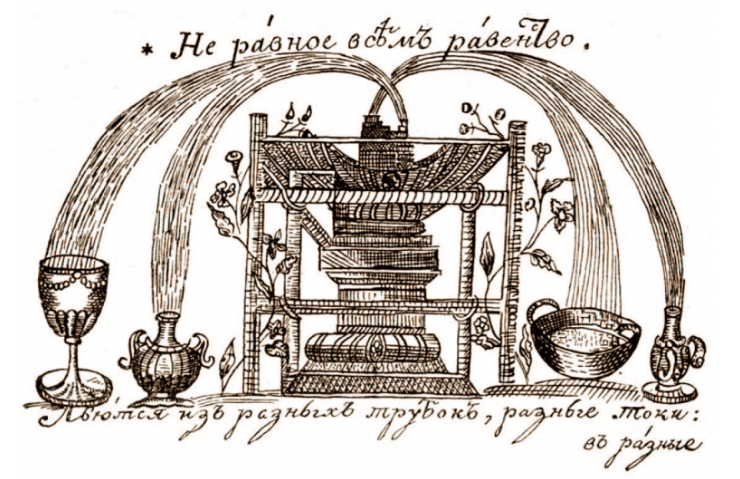 * Не ра́вное всѣ̑мъ ра́венство.
Лью́тся изъ разныхъ трубокъ, разные токи:
въ ра́зные